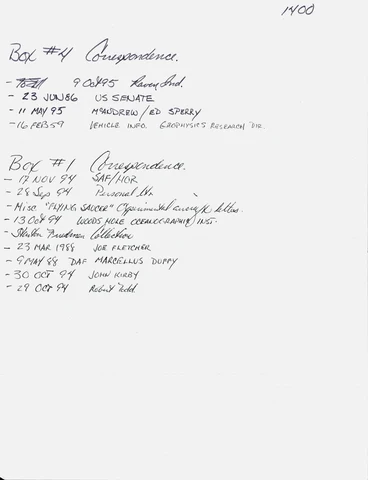 1400
Box #4 Correspondence.
- 9 Oct 95 Raven Ind.
- 23 JUN 86 US SENATE
- 11 MAY 95 McANDREW/ED SPERRY
- 16 FEB 59 VEHICLE INFO. GEOPHYSICS RESEARCH DIR.
Box #1 Correspondence.
- 17 NOV 94 SAF/HOR
- 28 Sep 94 Personal ltr.
- Misc. "FLYING SAUCER" Experimental letters.
- 13 Oct 94 WOODS HOLE OCEANOGRAPHIC INST.
- Friedman Collection
- 23 MAR 1988 JOE FLETCHER
- 9 MAY 88 DAF MARCELLUS DUFFY
- 30 OCT 94 JOHN KIRBY
- 29 OCT 94 Robert Todd